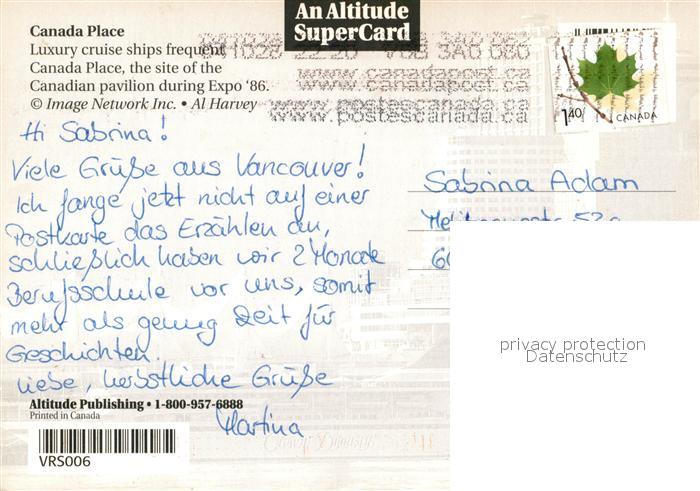 An Altitude
SuperCard
Canada Place
Luxury cruise ships frequent
Canada Place, the site of the
Canadian pavilion during Expo '86.
© Image Network Inc. • Al Harvey
www.canadapost.ca
www.canadapost.ca
www.postescanada.ca
1.40 CANADA
Hi Sabrina!
Viele Grüße aus Vancouver!
Ich fange jetzt nicht auf einer
Postkarte das Erzählen an,
schließlich haben wir 2 Monate
Berufsschule vor uns, somit
mehr als genug Zeit für
Geschichten.
Liebe, herbstliche Grüße
Martina
Sabrina Adam
privacy protection
Datenschutz
Altitude Publishing • 1-800-957-6888
Printed in Canada
VRS006